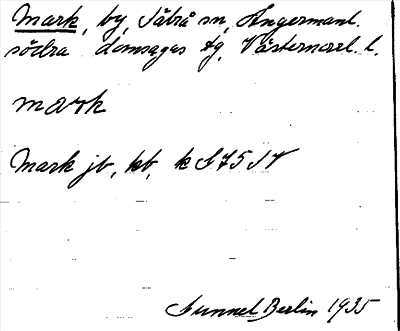 Mark, by, Säbrå sn, Ångermanl.
södra domsagas tg, Västernorrl. l.
mark
Mark jb, kb, k
Gunnel Berlin 1935